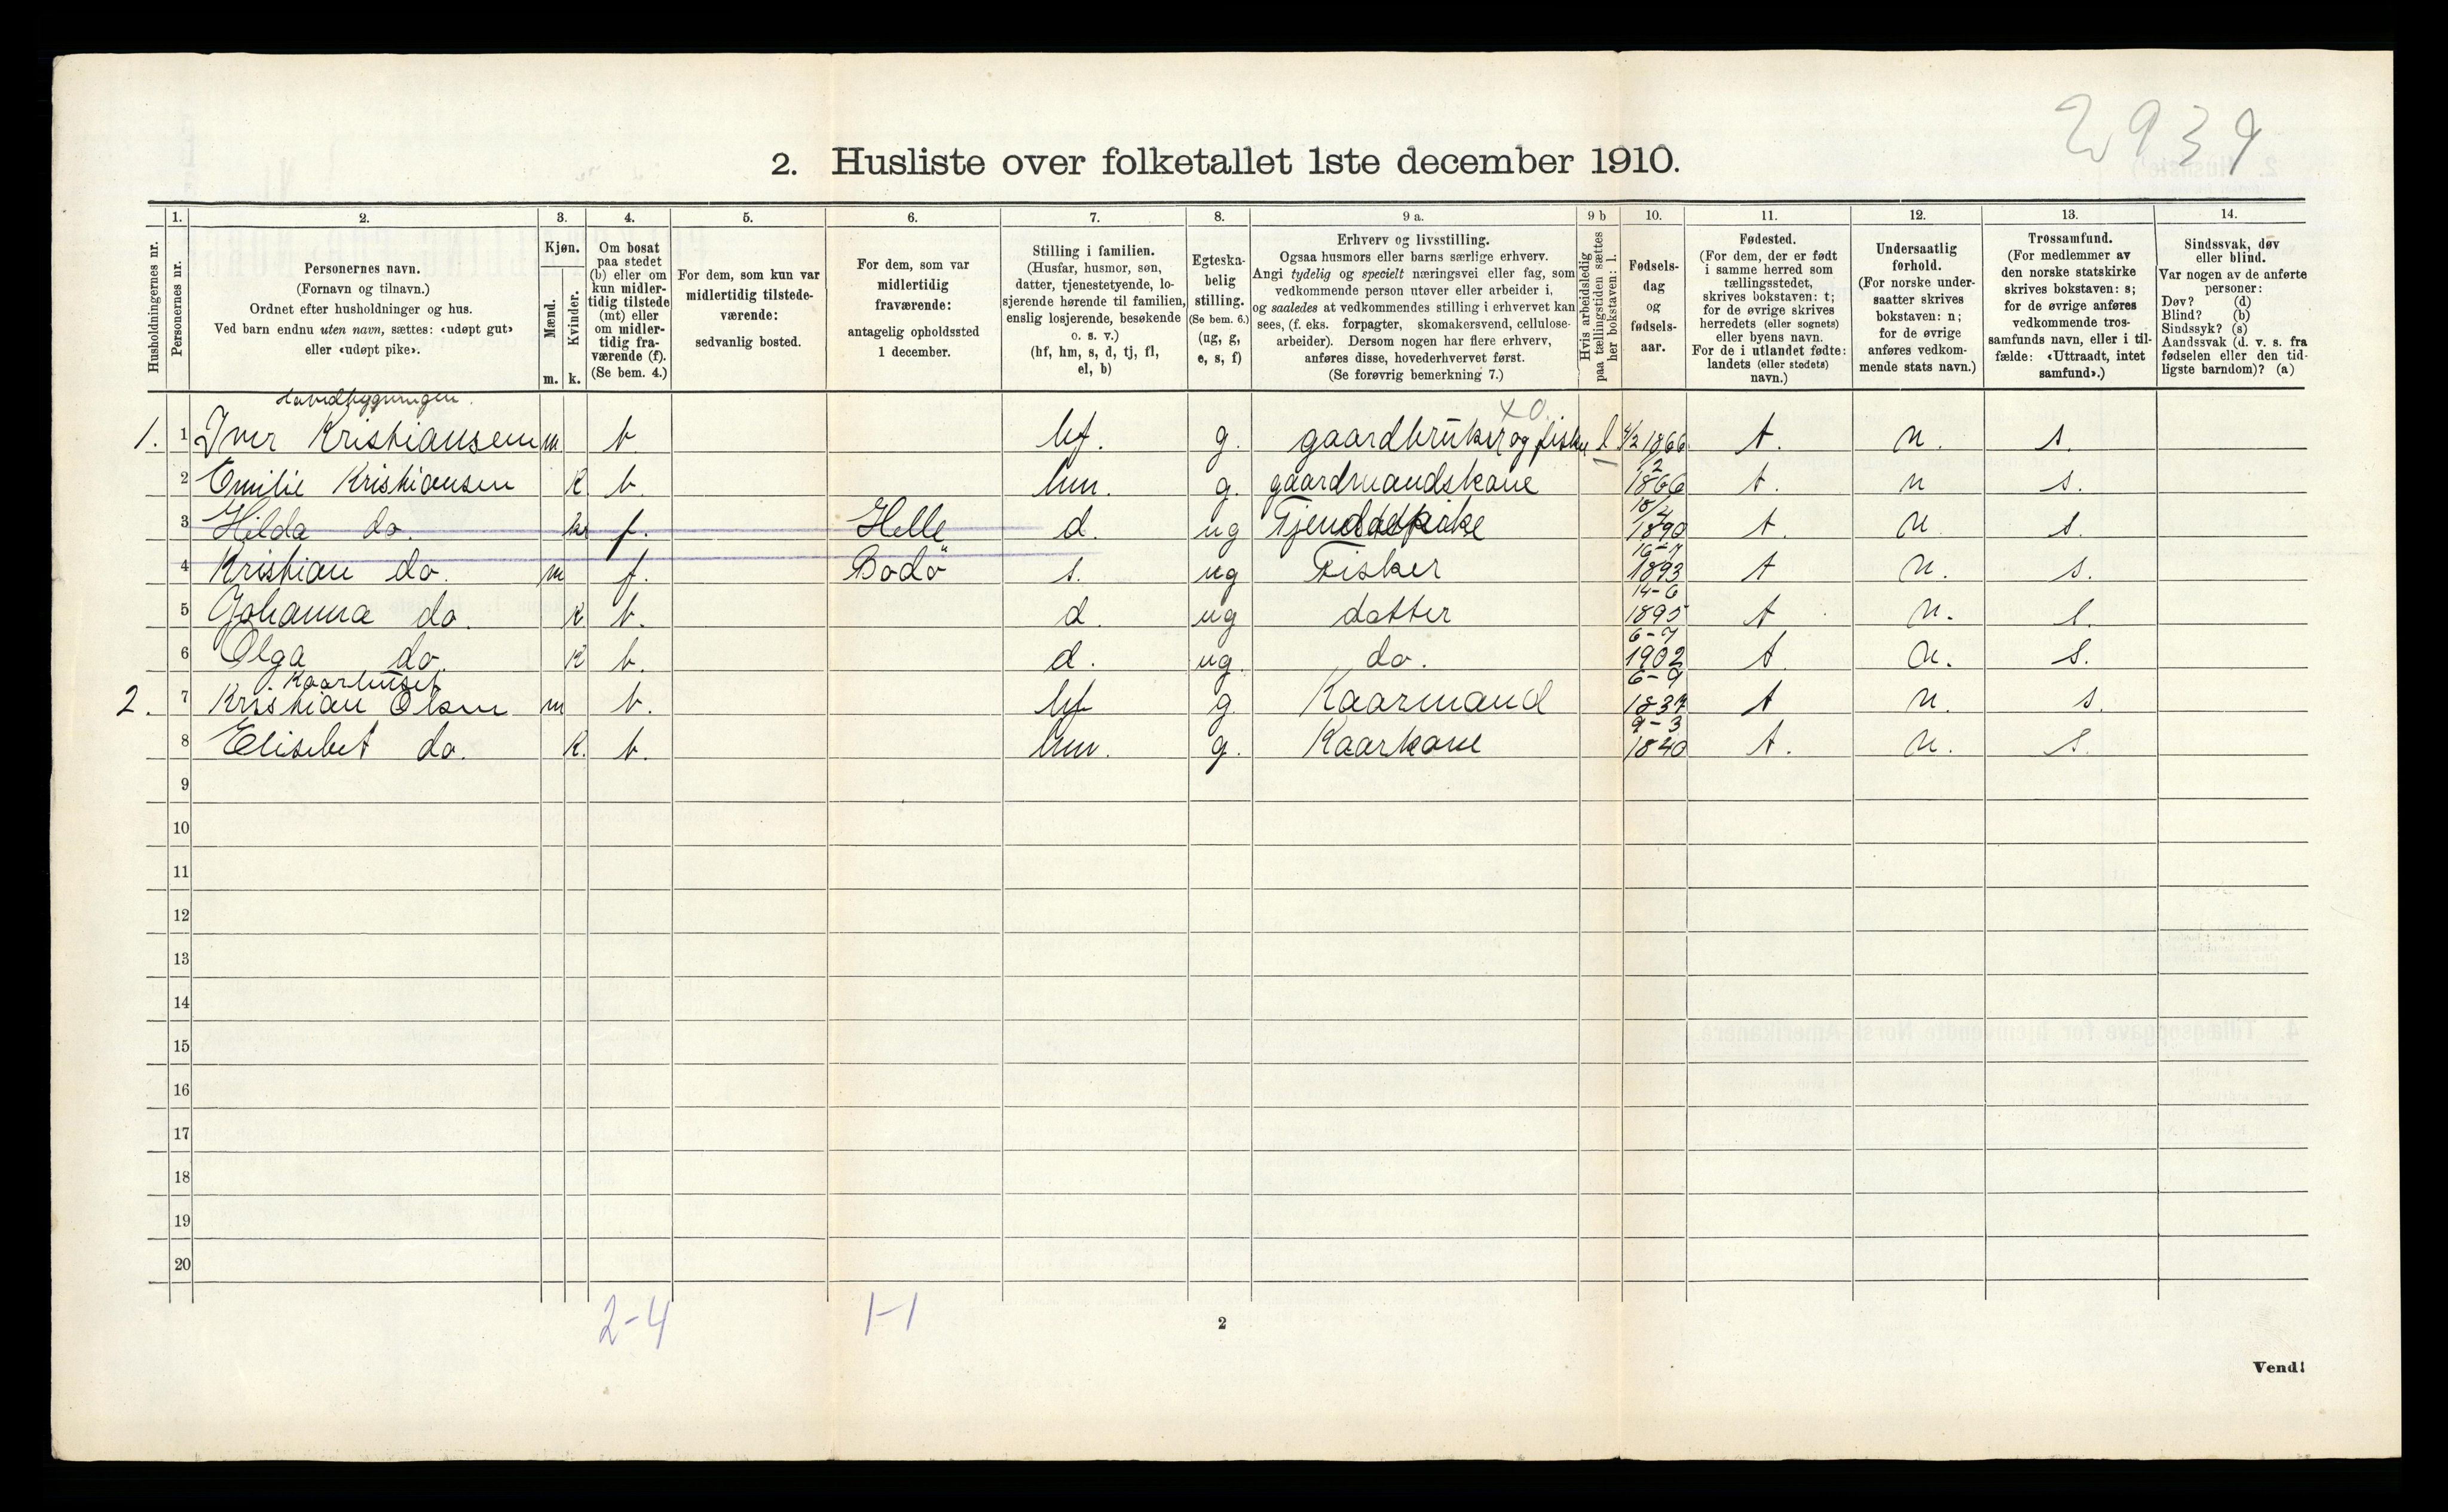 2939
2. Husliste over folketallet 1ste december 1910.
Husholdningernes nr.
1. Personernes nr.
2. Personernes navn.
(Fornavn og tilnavn.)
Ordnet efter husholdninger og hus.
Ved barn endnu uten navn, sættes: «udøpt gut»
eller «udøpt pike».
3. Kjøn.
Mænd. Kvinder.
m. k.
4. Om bosat
paa stedet
(b) eller om
kun midler-
tidig tilstede
(mt) eller
om midler-
tidig fra-
værende (f).
(Se bem. 4.)
5. For dem, som kun var
midlertidig tilstede-
værende:
sedvanlig bosted.
6. For dem, som var
midlertidig
fraværende:
antagelig opholdssted
1 december.
7. Stilling i familien.
(Husfar, husmor, søn,
datter, tjenestetyende, lo-
sjerende hørende til familien,
enslig losjerende, besøkende
o. s. v.)
(hf, hm, s, d, tj, fl,
el, b)
8. Egteska-
belig
stilling.
(Se bem. 6.)
(ug, g,
e, s, f)
9 a. Erhverv og livsstilling.
Ogsaa husmors eller barns særlige erhverv.
Angi tydelig og specielt næringsvei eller fag, som
vedkommende person utøver eller arbeider i,
og saaledes at vedkommendes stilling i erhvervet kan
sees, (f. eks. forpagter, skomakersvend, cellulose-
arbeider). Dersom nogen har flere erhverv,
anføres disse, hovederhvervet først.
(Se forøvrig bemerkning 7.)
9 b Hvis arbeidsledig
paa tællingstiden sættes
her bokstaven: l.
10. Fødsels-
dag
og
fødsels-
aar.
11. Fødested.
(For dem, der er født
i samme herred som
tællingsstedet,
skrives bokstaven: t;
for de øvrige skrives
herredets (eller sognets)
eller byens navn.
For de i utlandet fødte:
landets (eller stedets)
navn.)
12. Undersaatlig
forhold.
(For norske under-
saatter skrives
bokstaven: n;
for de øvrige
anføres vedkom-
mende stats navn.)
13. Trossamfund.
(For medlemmer av
den norske statskirke
skrives bokstaven: s;
for de øvrige anføres
vedkommende tros-
samfunds navn, eller i til-
fælde: «Uttraadt, intet
samfund».)
14. Sindssvak, døv
eller blind.
Var nogen av de anførte
personer:
Døv? (d)
Blind? (b)
Sindssyk? (s)
Aandssvak (d. v. s. fra
fødselen eller den tid-
ligste barndom)? (a)
xo.
1. 1 Iver Kristiansen m b hf. g. gaardbruker og fisker l 4/2 1866 t. n. s.
2 Emilie Kristiansen k b. hm. g. gaardmandskone 1866 t. n s.
3 Hilda do. k f. Helle d. ug 1890 t. n s.
4 Kristian do. m f. Bodö s. ug Fisker 16-7 1893 t n. s.
5 Johanna do. k b. d. ug datter 14-6 1895 t n. s.
6 Olga do. k b. d. ug. do. 6-7 1902 t. n. s.
Kaarhuset
2. 7 Kristian Olsen m b. hf g. Kaarmand 6-9 1837 t n. s.
8 Elisebet do. k. b. hm. g. Kaarkone 9-3 1840 t. n. s.
9
10
11
12
13
14
15
16
17
18
19
20
2-4 1-1
2
Vend!